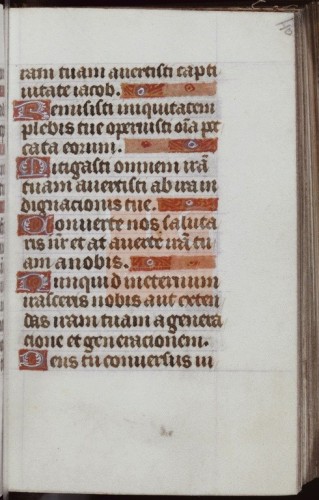 ram tuam avertisti capti
vitate iacob.
Remisisti iniquitatem
plebis tue operuisti oīa pec
cata eorum.
Mitigasti omnem irā
tuam avertisti ab ira in
dignacionis tue.
Converte nos saluta
ris nr̄ et at averte irā tu
am a nobis.
Nunquid ineternum
irasceris nobis aut exten
das iram tuam a genera
cione et generacionem.
Deus tu conversus vi